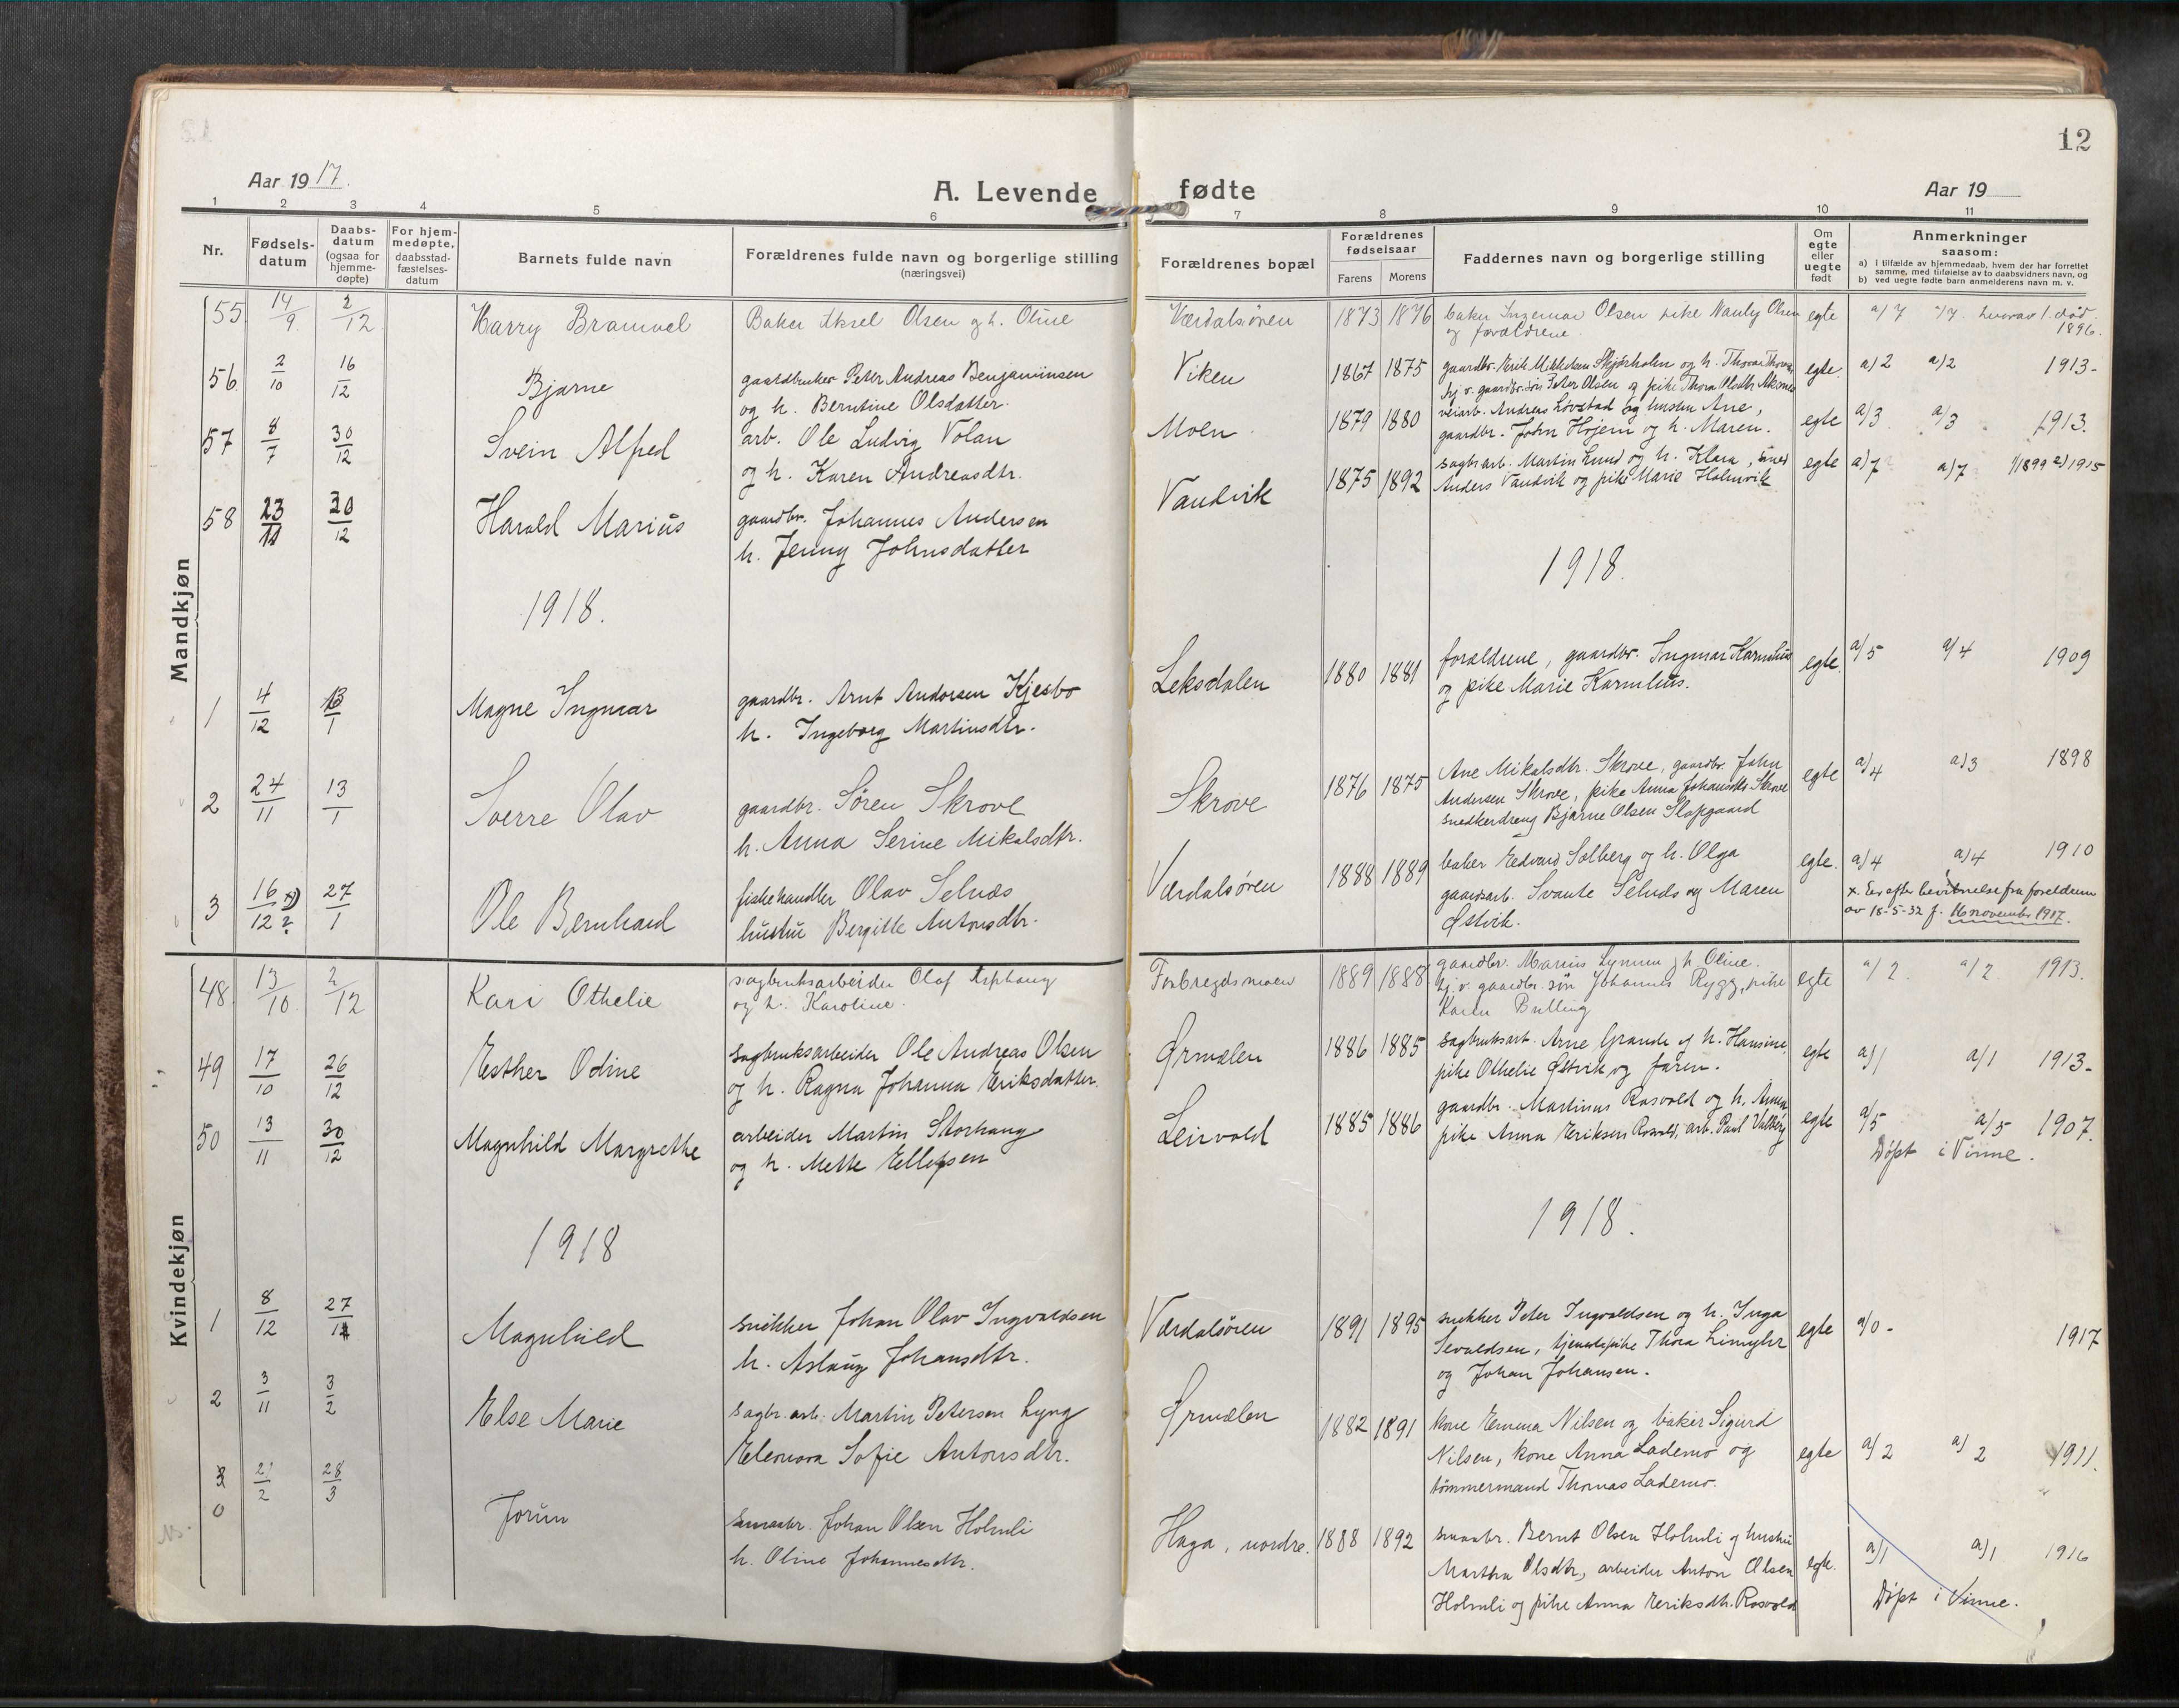 12
Aar 1917.
A. Levende fødte
Aar 19
1 2 3 4 5 6 7 8 9 10 11
Nr.
Fødsels-
datum
Daabs-
datum
(ogsaa for
hjemme-
døpte)
For hjem-
medøpte,
daabsstad-
fæstelses-
datum
Barnets fulde navn
Forældrenes fulde navn og borgerlige stilling
(næringsvei)
Forældrenes bopæl
Forældrenes
fødselsaar
Farens Morens
Faddernes navn og borgerlige stilling
Om
egte
eller
uegte
født
Anmerkninger
saasom:
a) i tilfælde av hjemmedaab, hvem der har forrettet
samme, med tilføielse av to daabsvidners navn, og
b) ved uegte fødte barn anmelderens navn m. v.
Mandkjøn
55 14/9 2/12 Harry Bramvel
Baker Aksel Olsen og h. Oline
Værdalsøren 1873 1876
baker Ingemar Olsen pike Nanly Olsen
og forældrene.
egte a/7 a/7 hvorav 1. død
1896.
56 2/10 16/12 Bjarne
gaardbruker Peter Andreas Benjaminsen
og h. Berntine Olsdatter.
Viken 1867 1875
gaardbr. Erik Mikkelsen Skjørholm og h. Thora
hj. v. gaardbr. søn Peter Olsen og pike Thora Olsdtr.
egte. a/2 a/2 1913-
57 8/7 30/12 Svein Alfred
arb. Ole Ludvig Volan
og h. Karen Andreasdtr.
Moen 1879 1880
veiarb. Andreas Løvstad og hustru Ane,
gaardbr. John Hojem og h. Maren.
egte a/3 a/3 1913.
58 23/11 30/12 Harald Marius
gaardbr. Johannes Andersen
h. Jenny Johnsdatter
Vandvik 1875 1892
sagbr.arb. Martin Lund og h. Klara, smed
Anders Vandvik og pike Marie Holmvik
egte a/7 a/7 1/1899 2/1915
1918.
1918.
1 4/12 13/1 Magne Ingmar
gaardbr. Arnt Andersen Kjesbo
h. Ingeborg Martinsdtr.
Leksdalen 1880 1881
forældrene, gaardbr. Ingmar Karmhus
og pike Marie Karmhus.
egte. a/5 a/4 1909
2 24/11 13/1 Sverre Olav
gaardbr. Søren Skrove
h. Anna Serine Mikalsdtr.
Skrove 1876 1875
Ane Mikalsdtr. Skrove, gaardbr. John
Andersen Skrove, pike Anna Johansdtr. Skrove
snedkerdreng Bjarne Olsen Slapgaard
egte a/4 a/3 1898
3 16/12 x) ? 27/1 Ole Bernhard
fiskehandler Olav Selnæs
hustru Bergitte Antonsdtr.
Værdalsøren 1888 1889
baker Edvard Solberg og h. Olga
gaardsarb. Svante Selnæs og Maren
Østvik.
egte. a/4 a/4 1910
x. Er efter bevitnelse fra foreldrene
av 18-5-32 f. 16 november 1917.
Kvindekjøn
48 13/10 2/12 Kari Othelie
sagbruksarbeider Olaf Asphaug
og h. Karoline.
Forbregdsmoen 1889 1888
gaardbr. Marius Lynum og h. Oline.
hj. v. gaardbr. søn Johannes Rygg, pike
Karen Brilling
egte a/2. a/2 1913.
49 17/10 26/12 Esther Odine
Sagbruksarbeider Ole Andreas Olsen
og h. Ragna Johanna Eriksdatter.
Ørmelen 1886 1885
sagbruksarb. Arne Grande og h. Hansine,
pike Othelie Østvik og faren.
egte a/1 a/1 1913-
50 13/11 30/12 Magnhild Margrethe
arbeider Martin Storhaug
og h. Mette Ellefsen
Leirvold 1885 1886
gaardbr. Martinus Rosvold og h. Anna,
pike Anna Eriksen Rosvold, arb. Paul Valberg
egte a/5 a/5 1907.
Døpt i Vinne.
1918
1918.
1 8/12 27/1 Magnhild
snikker Johan Olav Ingvaldsen
h. Aslaug Johansdtr.
Værdalsøren 1891 1895
snikker Peter Ingvaldsen og h. Inga
Sevaldsen, tjenestepike Thora Limyhr
og Johan Johansen.
egte a/0- 1917
2 3/11 3/2 Else Marie
Sagbr. arb. Martin Petersen Lyng
Elenora Sofie Antonsdtr.
Ørmelen 1882 1891
kone Emma Nilsen og baker Sigurd
Nilsen, kone Anna Lademo og
tømmermand Thomas Lademo.
egte a/2 a/2 1911.
3 21/2 28/3 Jorun
smaabr. Johan Olsen Holmli
h. Oline Johannesdtr.
Haga, nordre. 1888 1892
smaabr. Bernt Olsen Holmli og hustru
Martha Olsdtr., arbeider Anton Olsen
Holmli og pike Anna Eriksdtr. Rosvold
egte. a/1 a/1 1916
Døpt i Vinne.